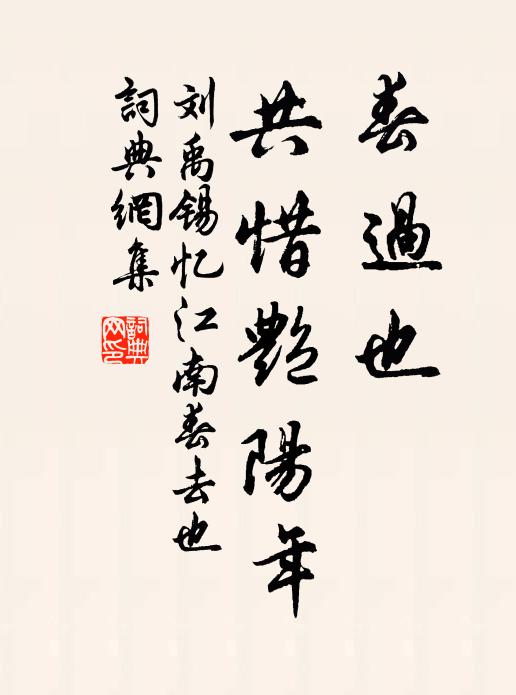 春過也
共惜艷陽年
刘禹锡忆江南春去也
詞典網集
詞典网印